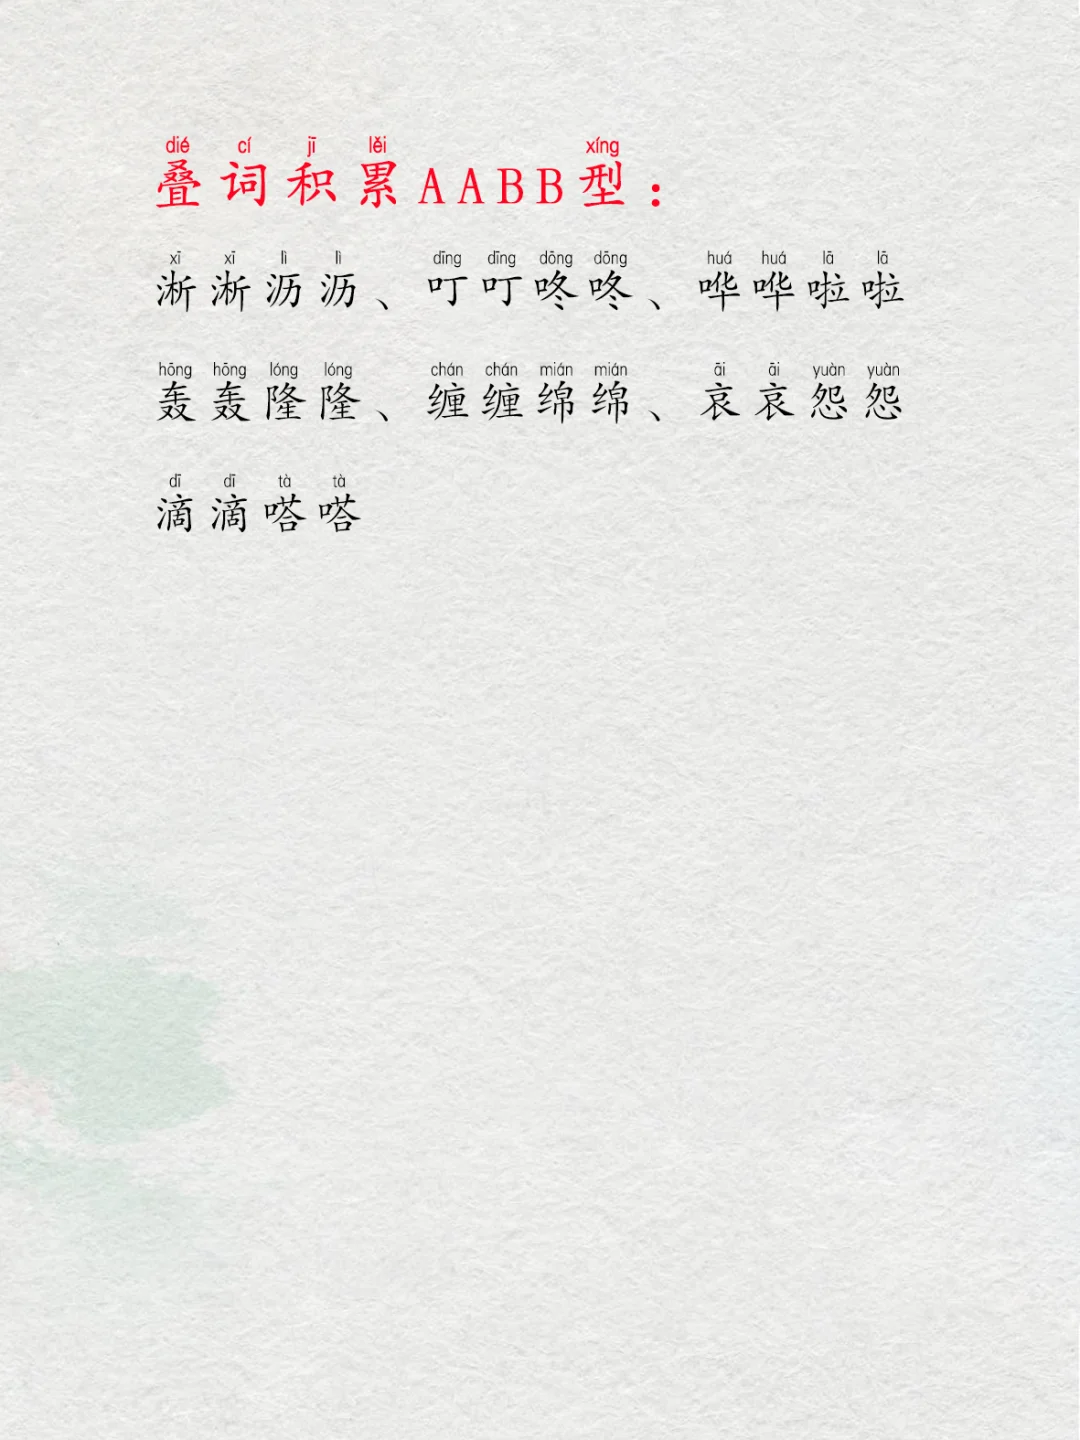 dié cí jī lěi xíng
叠词积累AABB型：
xī xī lì lì dīng dīng dōng dōng huá huá lā lā
淅淅沥沥、叮叮咚咚、哗哗啦啦
hōng hōng lóng lóng chán chán mián mián āi āi yuàn yuàn
轰轰隆隆、缠缠绵绵、哀哀怨怨
dī dī tà tà
滴滴嗒嗒